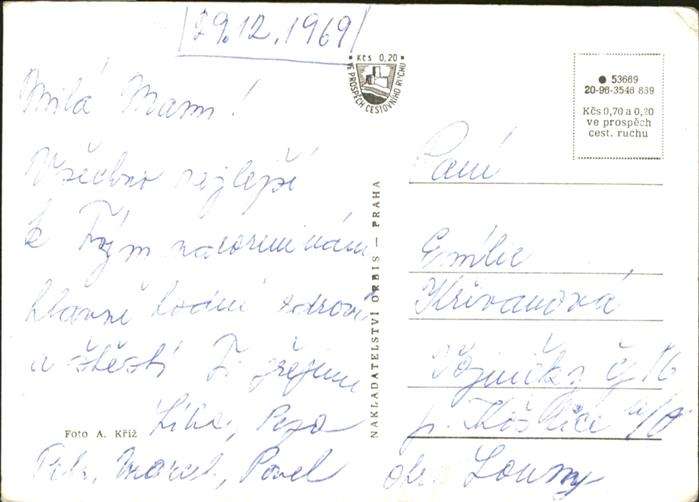 29.12.1969
Milá Mami!
Všechno nejlepší
k Tvým narozeninám
hlavně hodně zdraví
a štěstí Ti přejeme
Pepa
Marcel, Pavel
Foto A. Kříž
Kčs 0,20
VE PROSPĚCH CESTOVNÍHO RUCHU
NAKLADATELSTVÍ ORBIS — PRAHA
53669
20-96-3546 839
Kčs 0,70 a 0,20
ve prospěch
cest. ruchu
Paní
Emílie
Křivanová
Vojničky čp 16
p. Koštice n/O
okr. Louny